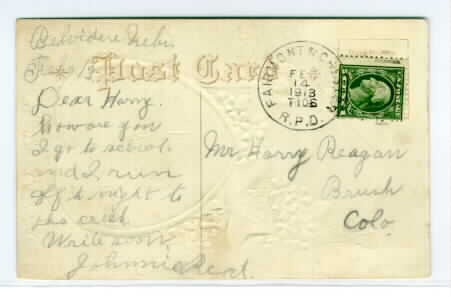 Belvidere Nebr
Feb 13
Post Card
Dear Harry.
How are you
I go to school
and I run
off at night to
the creek
Write soon
Johnnie
FAIRMONT
FEB
14
1913
R.P.O.
Mr Harry Reagan
Brush
Colo.